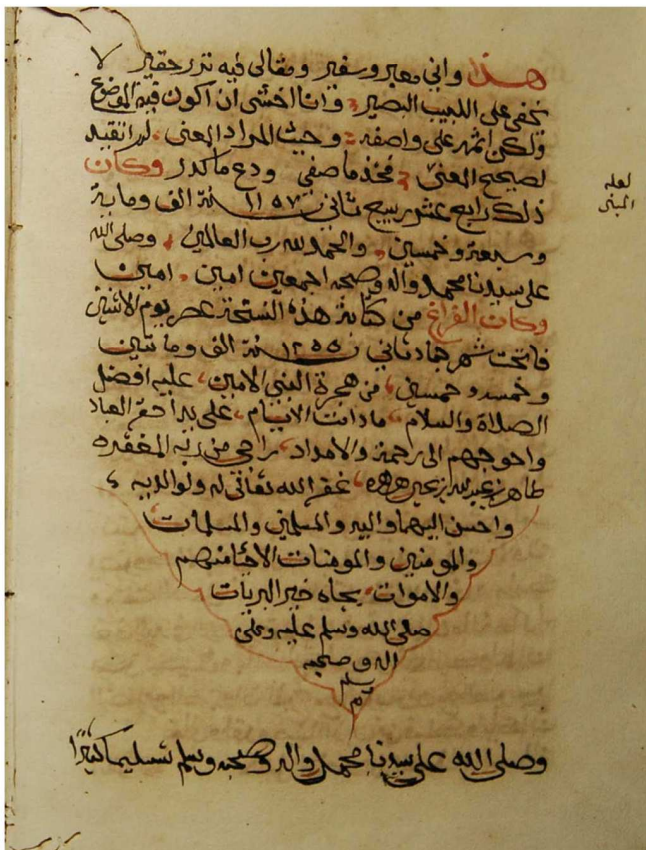 هذا واني معبر وسفير ومقالى فيه نزر حقير لا
يخفى على اللبيب البصير وانا اخشى ان اكون فيه الموضوع
ولكن على واصفه وحيث المراد المعنى
لصحيح المعنى فخذ ما صفى ودع ما كدر وكان
ذلك رابع عشر ربيع ثانى سنة ١١٥٧ الف وماية
وسبعة وخمسين والحمد لله رب العالمين وصلى الله
على سيدنا محمد واله وصحبه اجمعين امين امين
وكان الفراغ من كتابة هذه النسخة عصر يوم الاثنين
فاتحت شهر جماد ثاني سنة ١٢٥٥ الف ومائتين
وخمسه وخمسين من هجرة النبي الامين عليه افضل
الصلاة والسلام مادامت الايام على يد احقر العباد
واحوجهم الى رحمة والامداد راجي من ربه المغفره
طاهر بن عبد الله بن غفر الله تعالى له ولوالديه
واحسن اليهما واليه والمسلمين والمسلمات
والمومنين والمومنات الاحيا منهم
والاموات بجاه خير البريات
صلى الله وسلم عليه وعلى
اله وصحبه
وسلم
تم
وصلى الله على سيدنا محمد واله وصحبه وسلم تسليما كثيرا
لعله
المبنى